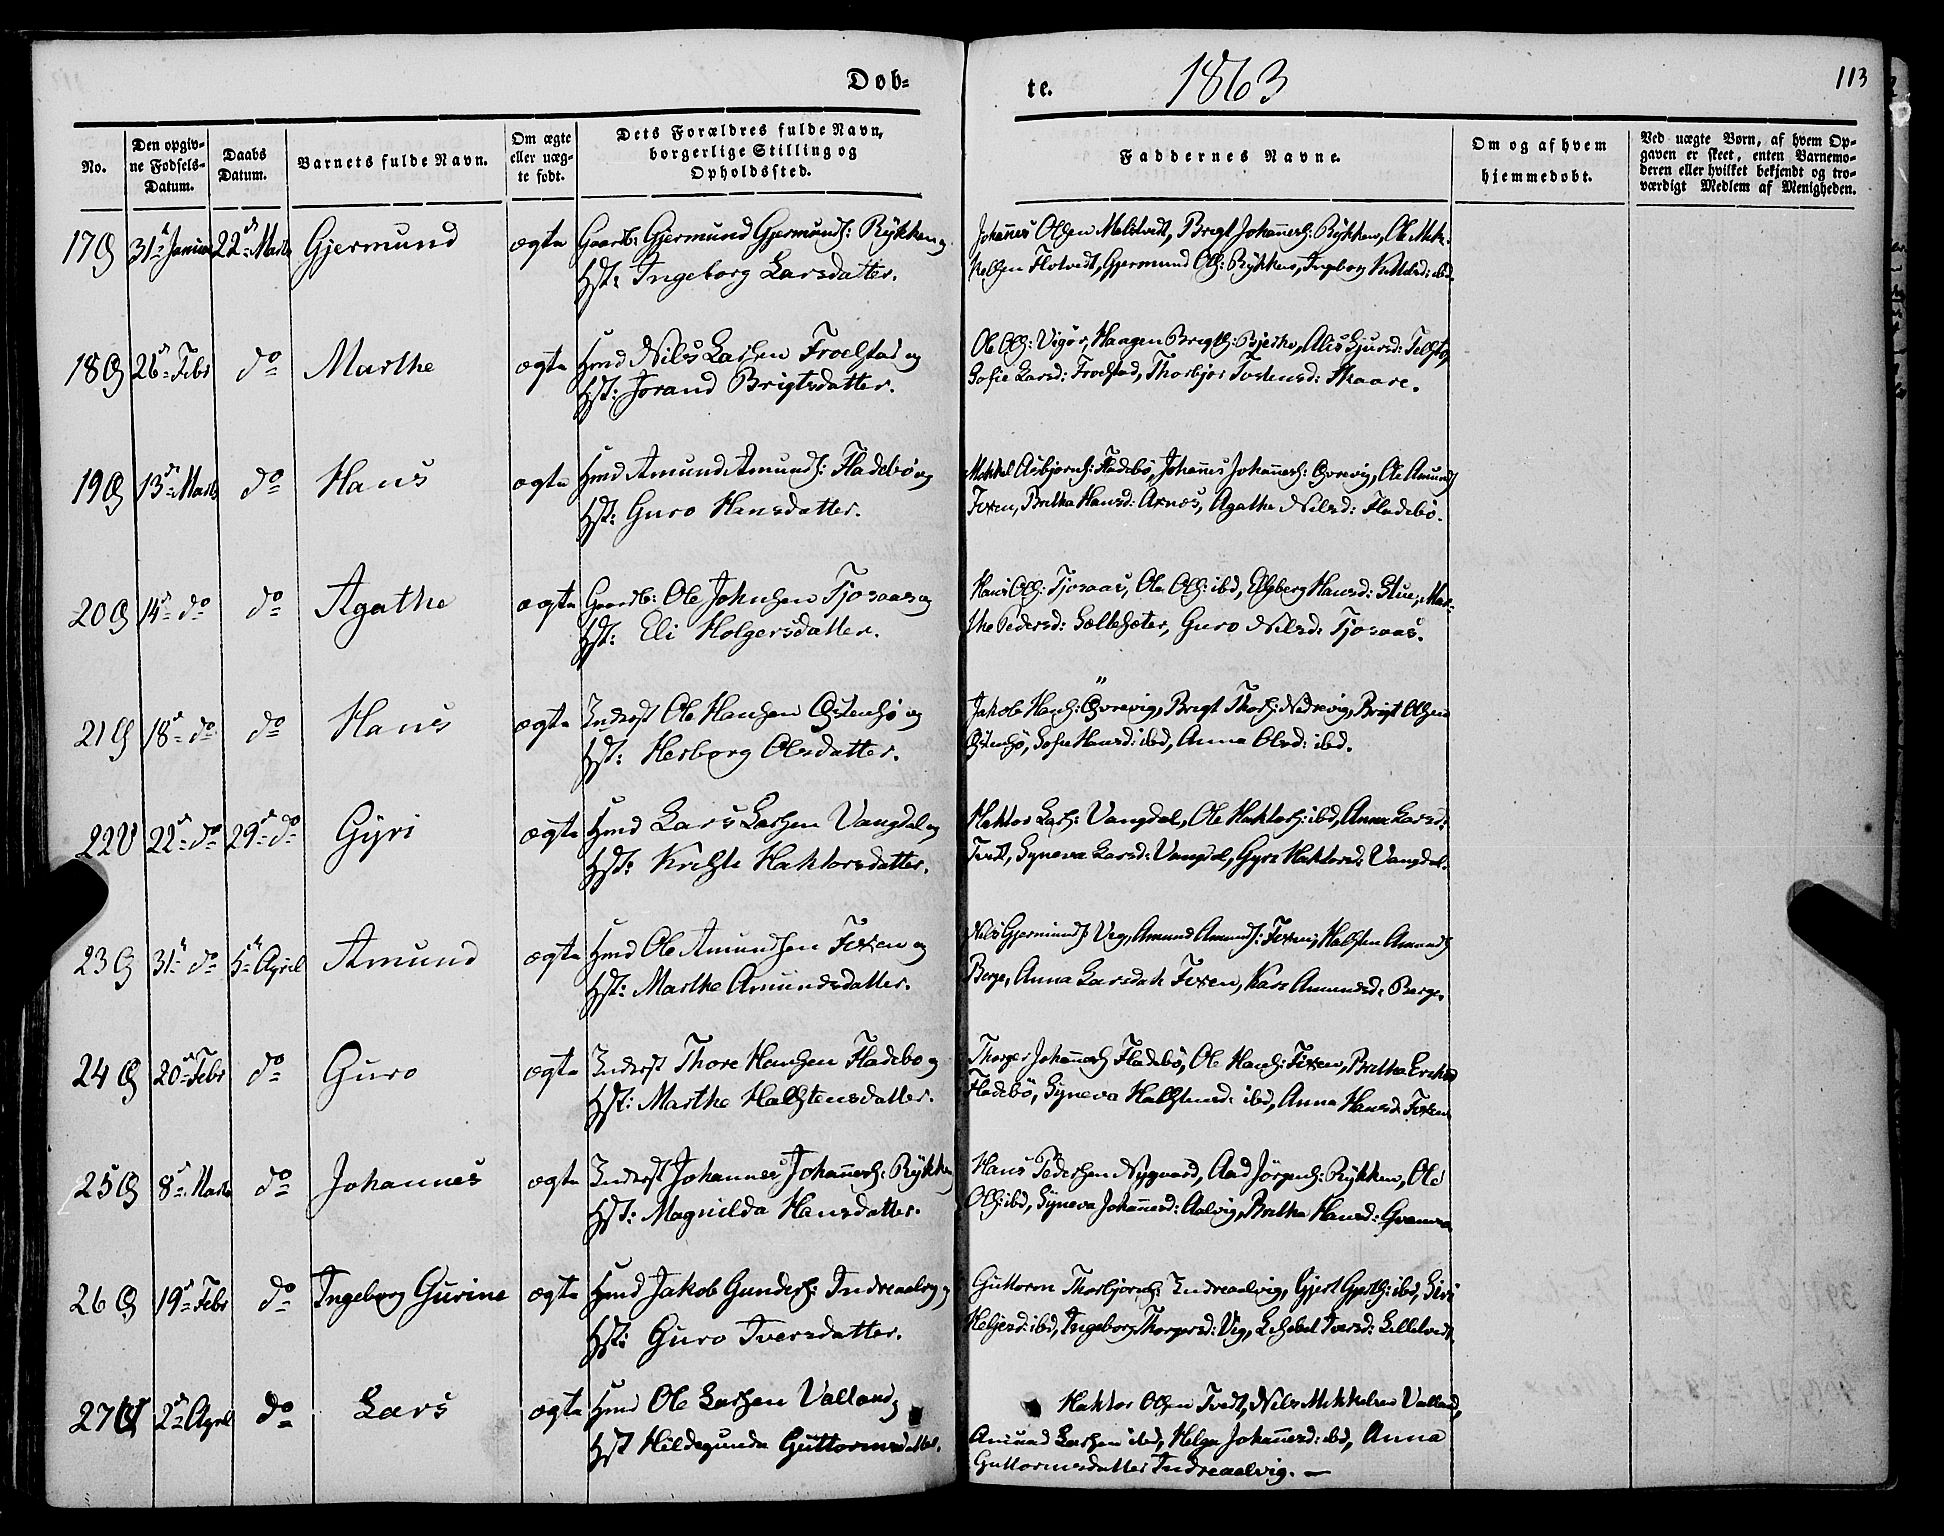 Døb-
te.
1863
113
No.
Den opgiv-
ne Fødsels-
Datum.
Daabs
Datum.
Barnets fulde Navn.
Om ægte
eller uæg-
te født.
Dets Forældres fulde Navn,
borgerlige Stilling og
Opholdssted.
Faddernes Navne.
Om og af hvem
hjemmedøbt.
Ved uægte Børn, af hvem Op-
gaven er skeet, enten Barnemo-
deren eller hvilket bekjendt og tro-
værdigt Medlem af Menigheden.
17 31te Januar 22de Marts Gjermund ægte Gaardb: Gjermund Gjermunds: Rykken og
Hst: Ingeborg Larsdatter.
Johannes Olsen Melstvedt, Brigt Johannes: Rykken, Ole Mik-
kelsen Flotvedt, Gjermund Ols: Rykken, Ingeborg Kittelsd: ibd.
18 26de Febr do Marthe ægte Hmd Nils Larsen Froestad og
Hst: Jorand Brigtsdatter.
Ole Ols: Vigør, Haagen Brigts: Bjerke, Alis Sjursd:
Sofie Larsd: Froestad, Thorbjør Tostensd: Skaare.
19 13de Marts do Hans ægte Hmd Amund Amunds: Fladebø og
Hst: Guro Hansdatter.
Mikkel Asbjørns: Fladebø, Johannes Johannes: Øvrevig, Ole Amunds
Foxen, Britha Hansd: Axnæs, Agathe Nilsd: Fladebø.
20 14de do do Agathe ægte Gaardb: Ole Johnsen Tjosaas og
Hst: Eli Holgersdatter.
Hans Ols: Tjosaas, Ole Ols: ibd, Elsberg Hansd: Stue, Mar-
the Pedersd: Sæltesæter, Guro Nilsd: Tjosaas.
21 18de do do Hans ægte Inderst Ole Hansen Østensø og
Hst: Herborg Olsdatter.
Jakob Hans: Øvrevig, Brigt Thors: Nedrevig, Brigt Olsen
Østensø, Sofie Hansd: ibd, Anna Olsd: ibd.
22 22de do 29de do Gyri ægte Hmd Lars Larsen Vangdal og
Hst: Kirsti Haktorsdatter.
Haktor Lars: Vangdal, Ole Haktors: ibd, Anna Larsd:
Tvedt, Syneva Larsd: Vangdal, Gyri Haktorsd: Vangdal.
23 31te do 5te April Amund ægte Hmd Ole Amundsen Foxen og
Hst: Marthe Amundsdatter.
Nils Gjermunds Vig, Amund Amunds: Foxen, Halsten Amunds
Berge, Anna Larsdatt Foxen, Kari Amundsd: Berge.
24 20de Febr do Guro ægte Inderst Thore Hansen Fladebø og
Hst: Marthe Halstensdatter.
Thorger Johannes Fladebø, Ole Hans: Foxen, Britha Eriksd
Fladebø, Synneva Halstensd: ibd, Anna Hansd: Foxen
25 8de Marts do Johannes ægte Inderst Johannes Johannes: Rykken
Hst: Magnilda Hansdatter.
Hans Pedersen Nygaard, Aad Jørgens: Rykken, Ole
Ols: ibd, Syneva Johannesd: Aalvig, Britha Hansd:
26 19de Febr do Ingeborg Gurine ægte Hmd Jakob Gunders: Indreaalvig
Hst: Guro Iversdatter.
Guttorm Thorbjørns: Indreaalvig, Gjert Gjerts: ibd, Siri
Heljesd: ibd, Ingeborg Thorgersd: Vig, Lisbet Iversd: Lilletvedt
27 2de April do Lars ægte Hmd Ole Larsen Valland
Hst Hildegunda Guttormsdatter.
Haktor Olsen Tvedt, Nils Mikkelsen Valland,
Amund Larsen ibd, Helga Johannesd: ibd, Anna
Guttormsdatter Indreaalvig. —